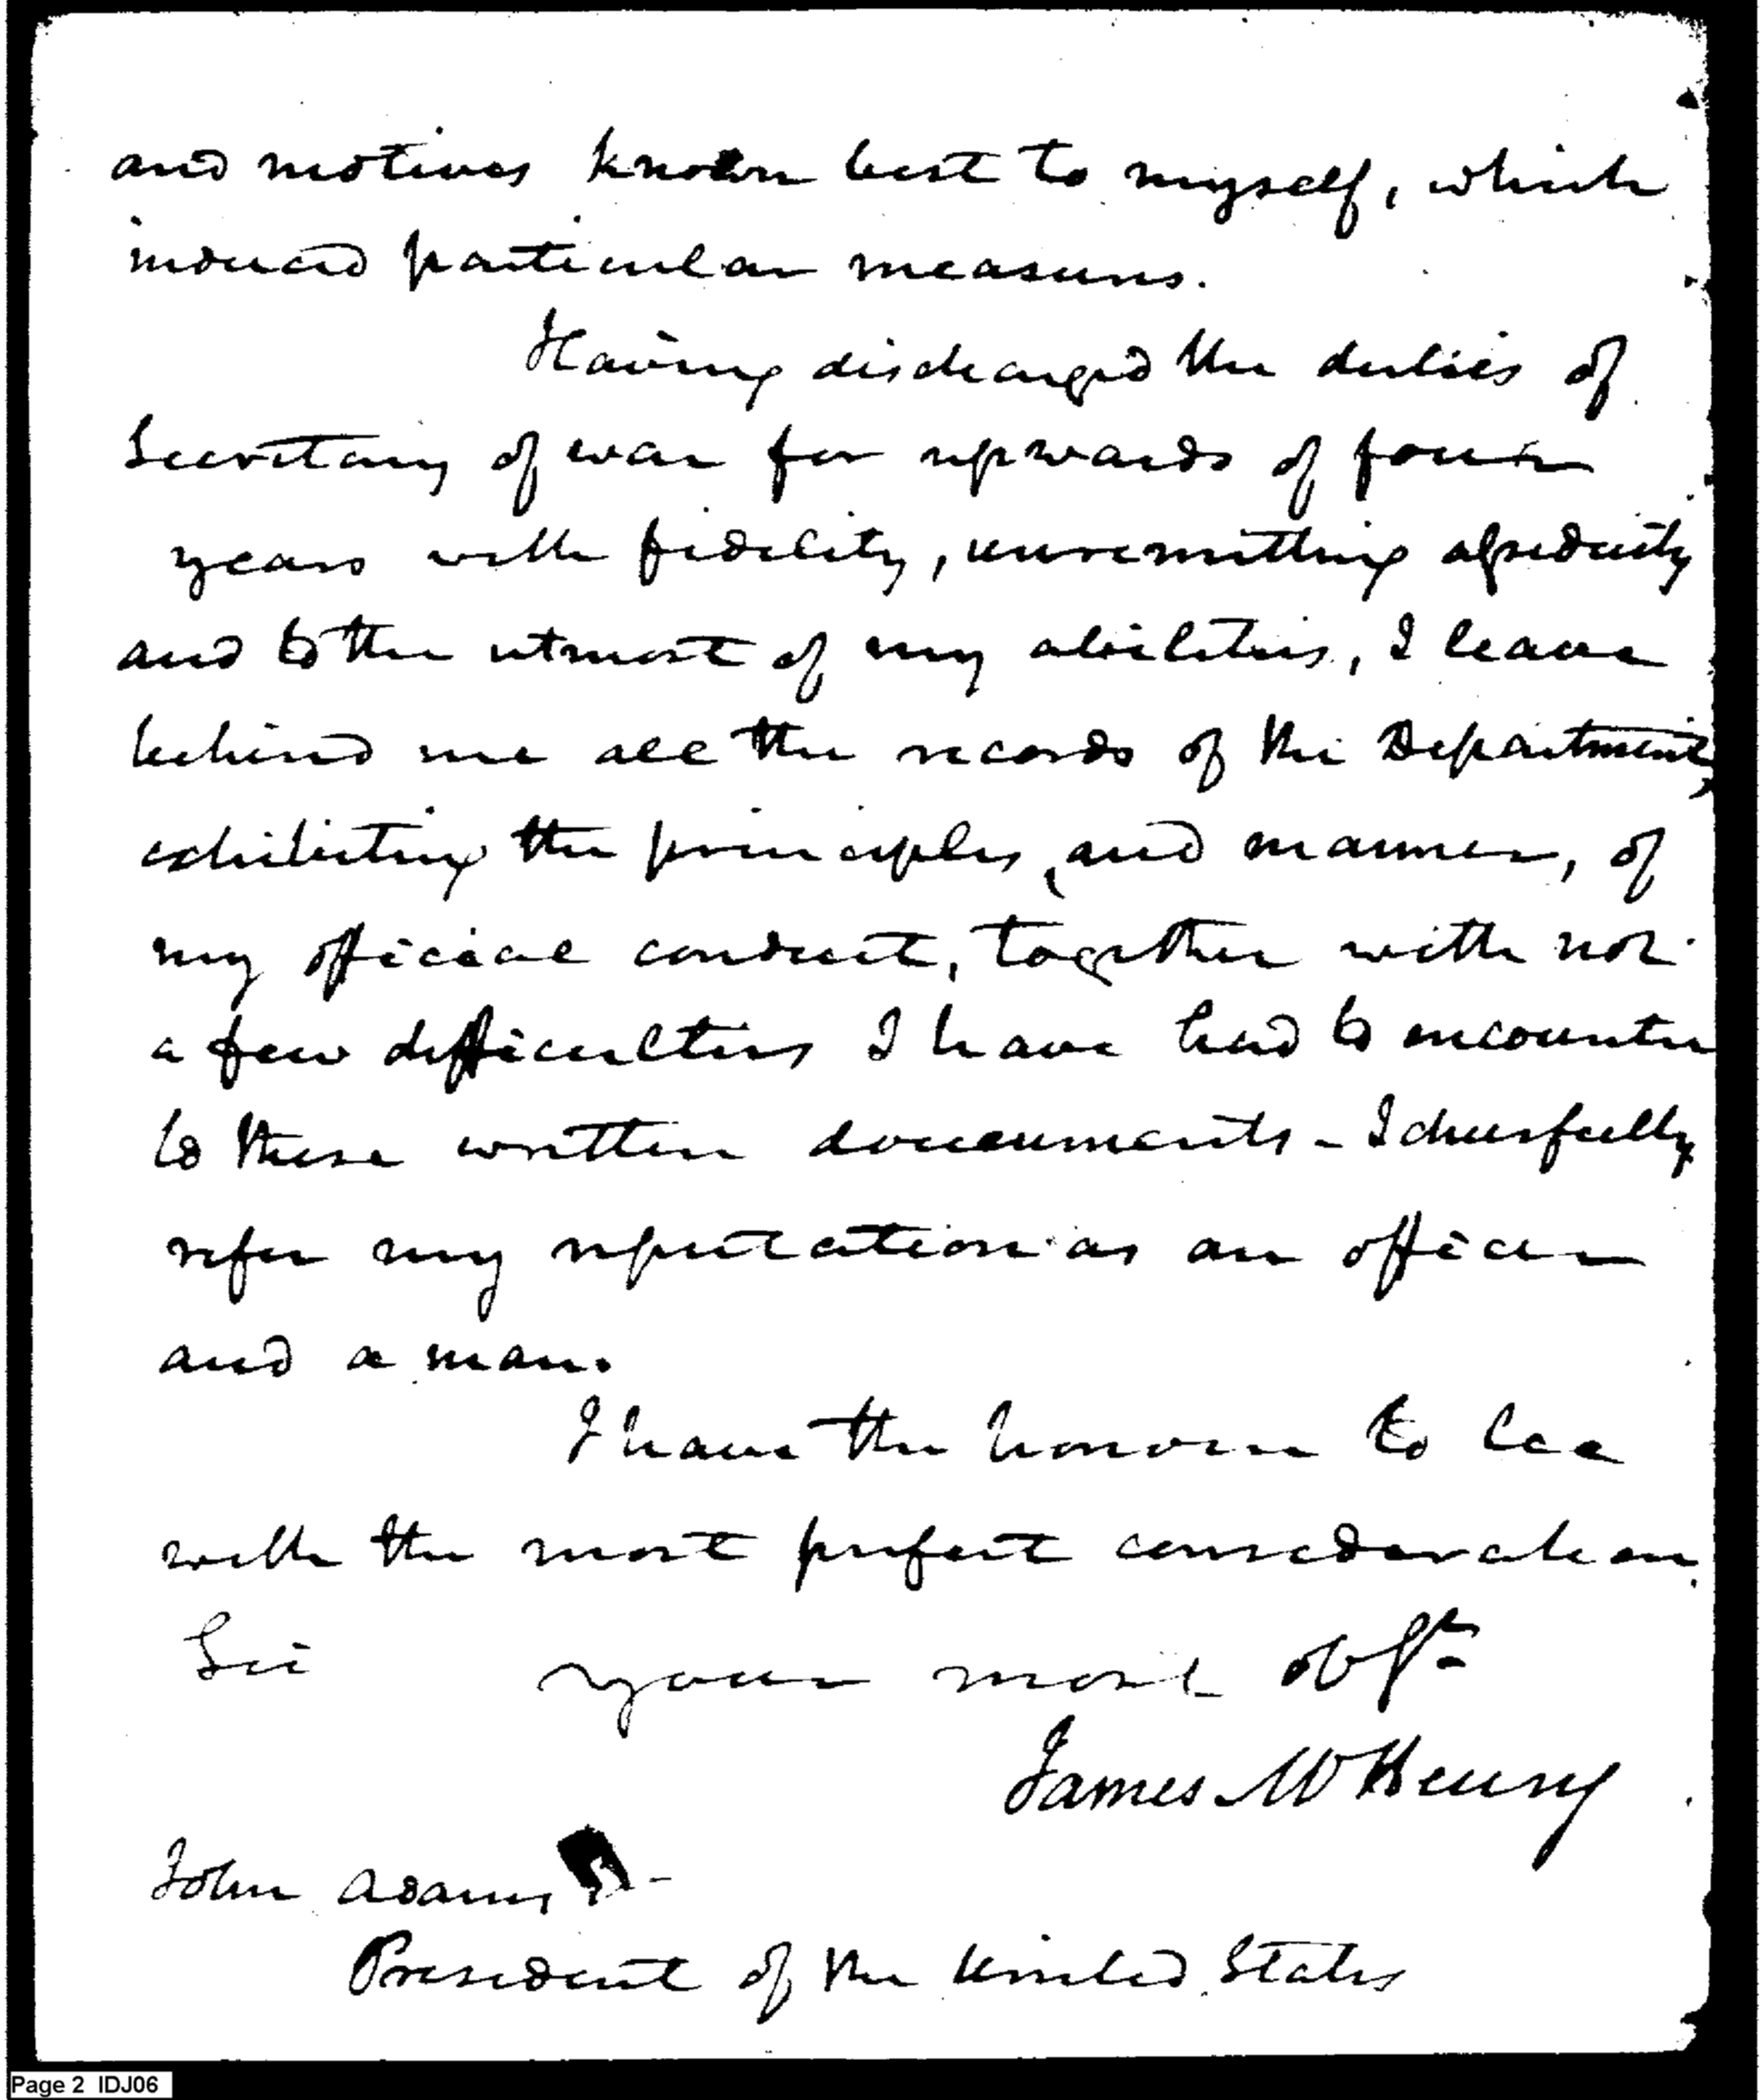 and motives known best to myself, which
induced particular measures.
Having discharged the duties of
Secretary of war for upwards of four
years with fidelity, unremitting assiduity
and to the utmost of my abilities, I leave
behind me all the records of the Department,
exhibiting the principles, and manner, of
my official conduct, together with not
a few difficulties I have had to encounter
to these written documents - I chearfully
refer my reputation as an officer
and a man.
I have the honour to be
with the most perfect consideration,
Sir your most obt
James McHenry
John Adams
President of the United States
Page 2 IDJ06